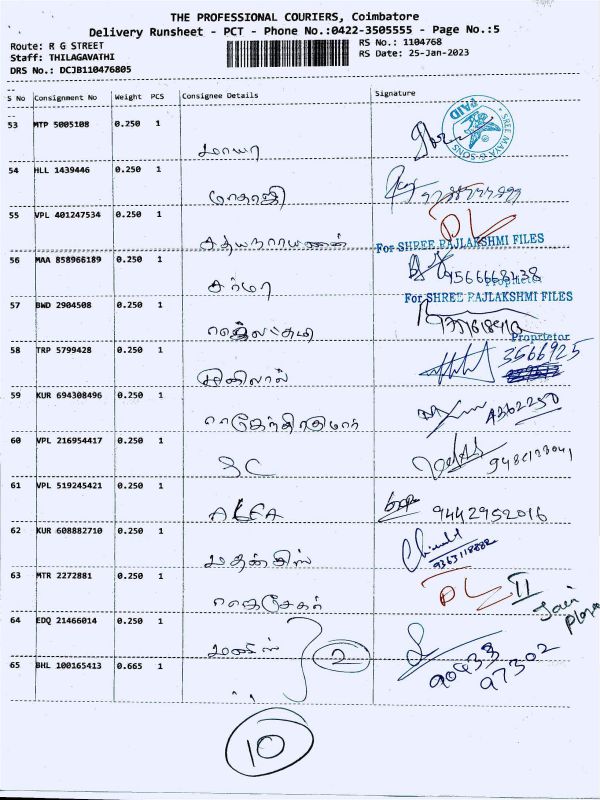 THE PROFESSIONAL COURIERS, Coimbatore
Delivery Runsheet - PCT - Phone No.:0422-3505555 - Page No.:5
Route: R G STREET RS No.: 1104768
Staff: THILAGAVATHI RS Date: 25-Jan-2023
DRS No.: DCJB110476805
S No Consignment No Weight PCS Consignee Details Signature
53 MTP 5005108 0.250 1
மாயா
SREE MAYA & SONS PAID
54 HLL 1439446 0.250 1
மாதாஜி
55 VPL 401247534 0.250 1
சத்யநாராயணன்
DL
For SHREE RAJLAKSHMI FILES
56 MAA 858966189 0.250 1
சர்மா
9566668438
Proprietor
For SHREE RAJLAKSHMI FILES
57 BWD 2904508 0.250 1
ராஜலட்சுமி
Proprietor
58 TRP 5799428 0.250 1
3566925
59 KUR 694308496 0.250 1
ராஜேந்திரகுமார்
4362250
60 VPL 216954417 0.250 1
SC
61 VPL 519245421 0.250 1
ALFA
9442952016
62 KUR 608882710 0.250 1
9363118882
63 MTR 2272881 0.250 1
ராஜசேகர்
DL II
Jain Plaza
64 EDQ 21466014 0.250 1
மணிஸ்
2
65 BHL 100165413 0.665 1
" "
90433
97302
10